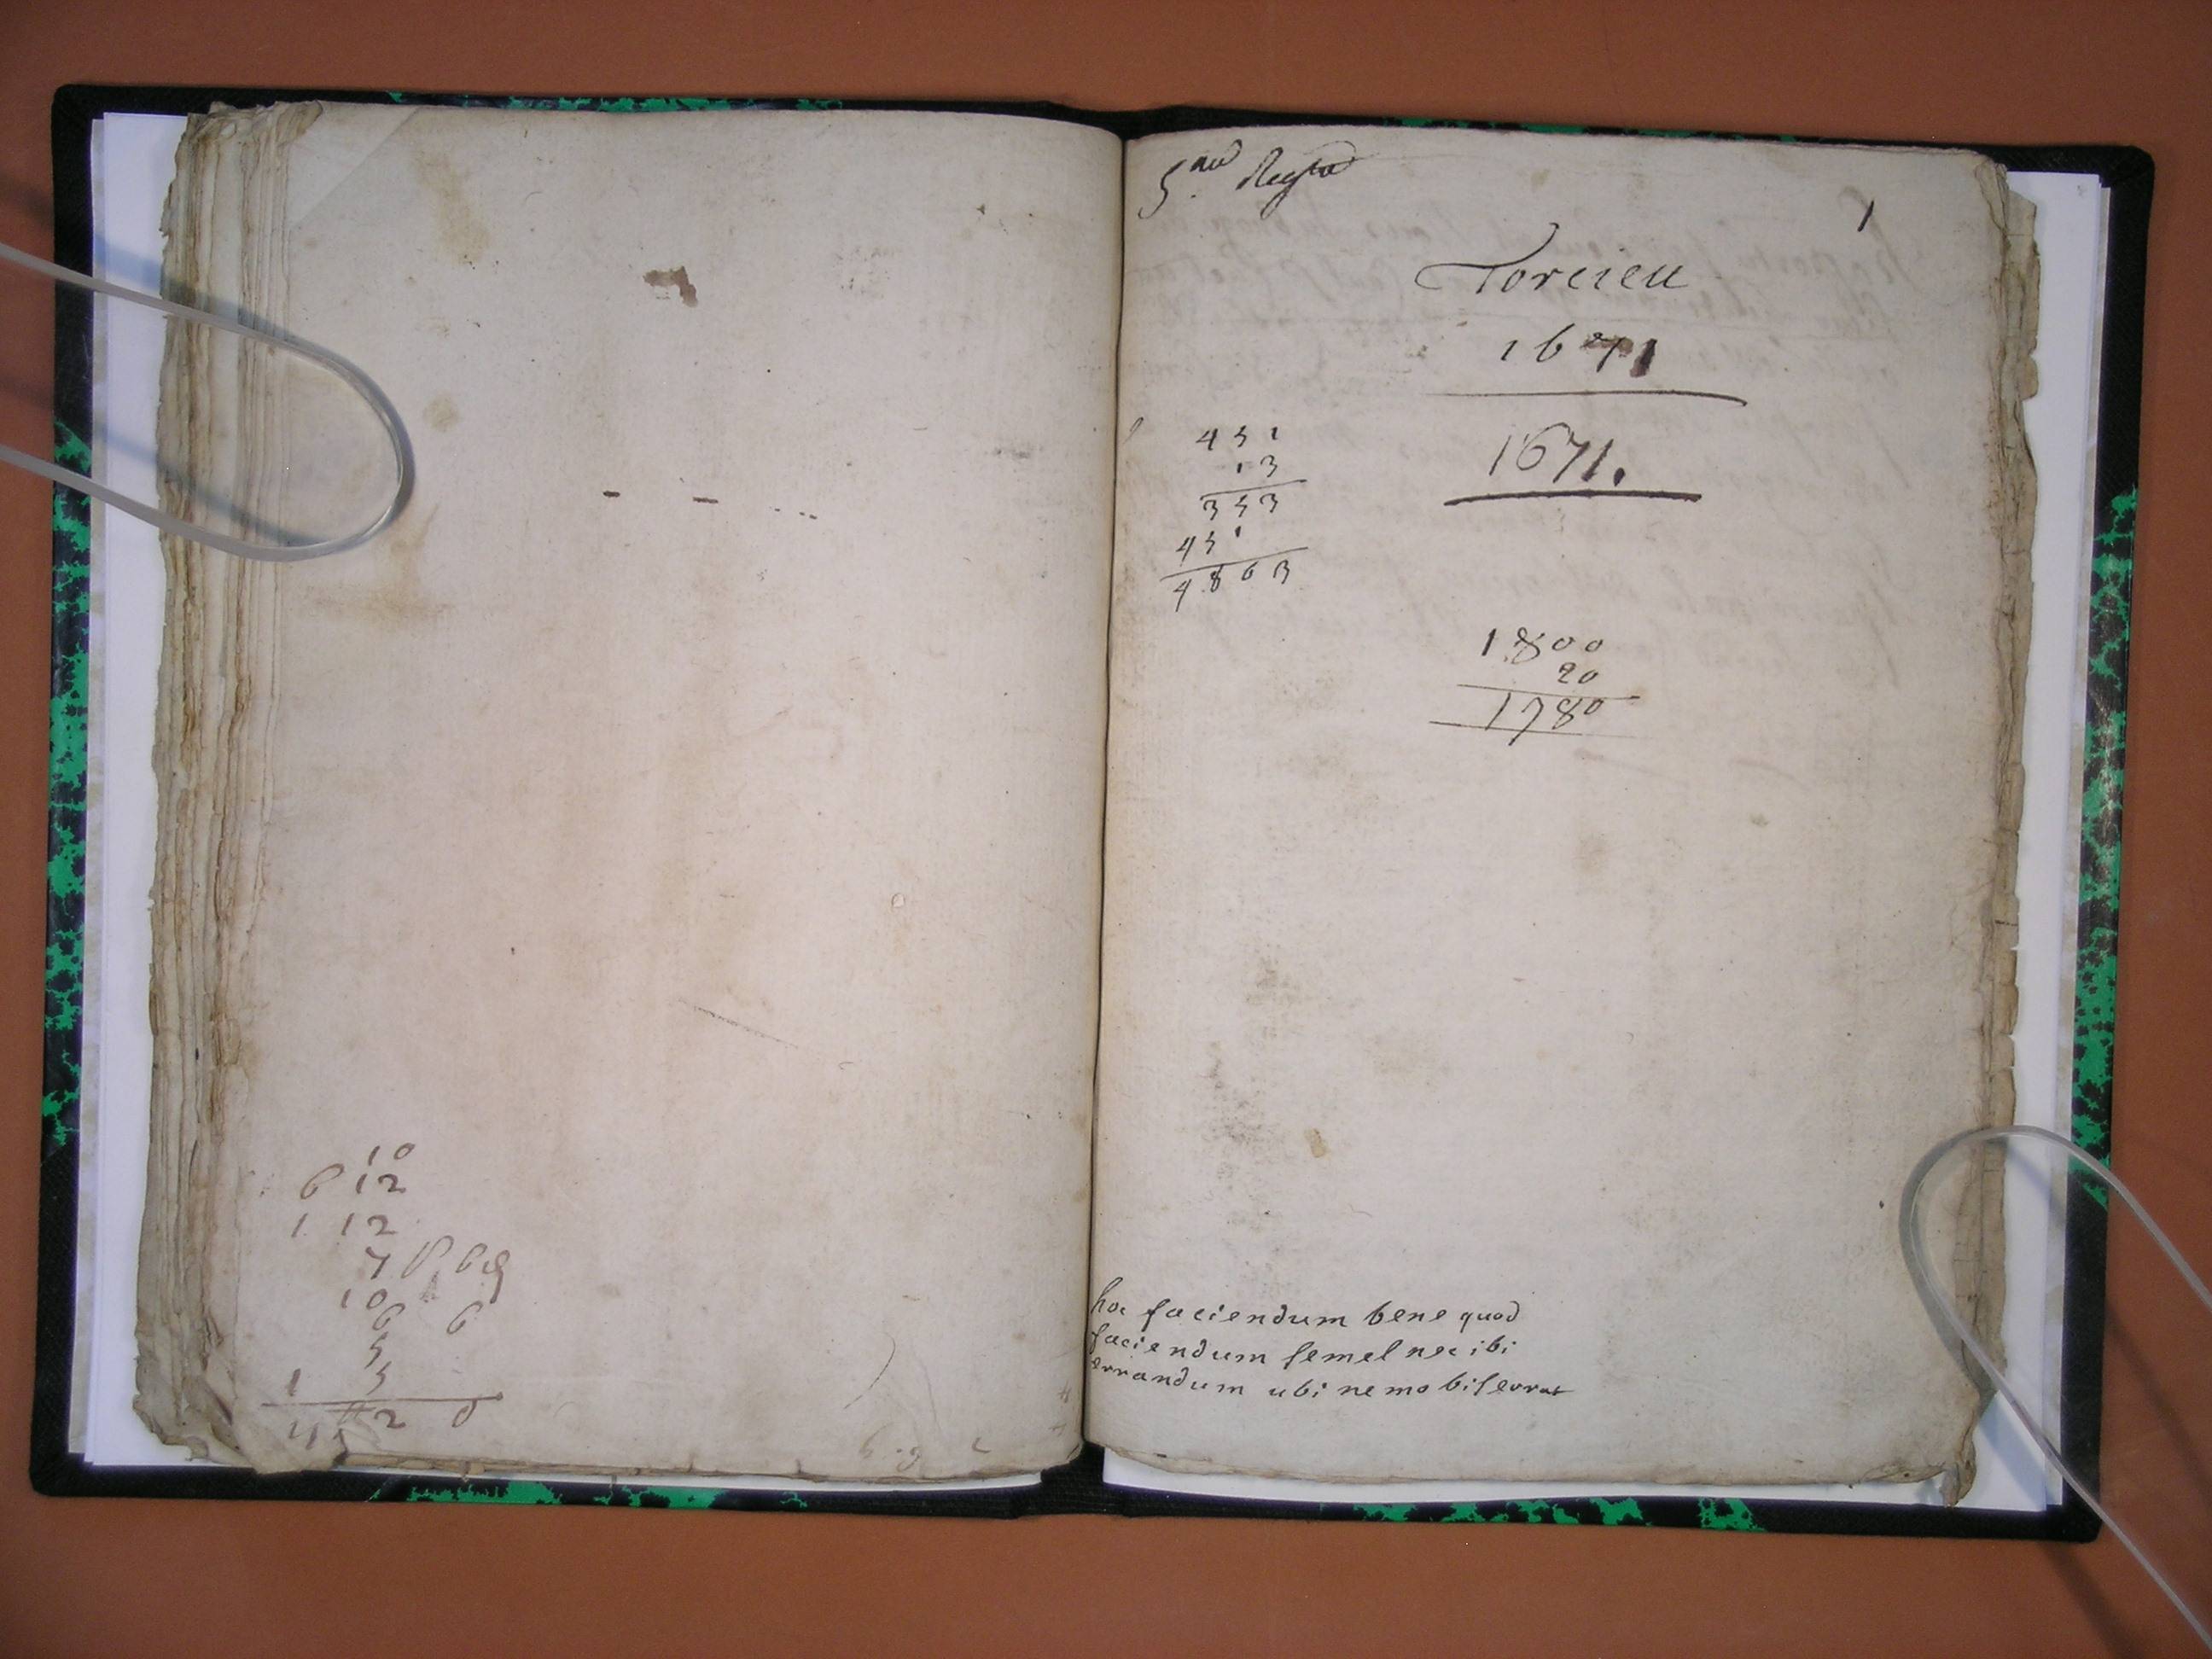 10
6 12
1 12
7
10
6 6
5
1 5
2 0
5me Regtre
1
Torcieu
1671
1671.
451
13
353
451
4863
1800
20
1780
hoc faciendum bene quod
faciendum semel nec ibi
errandum ubi nemo bis errat